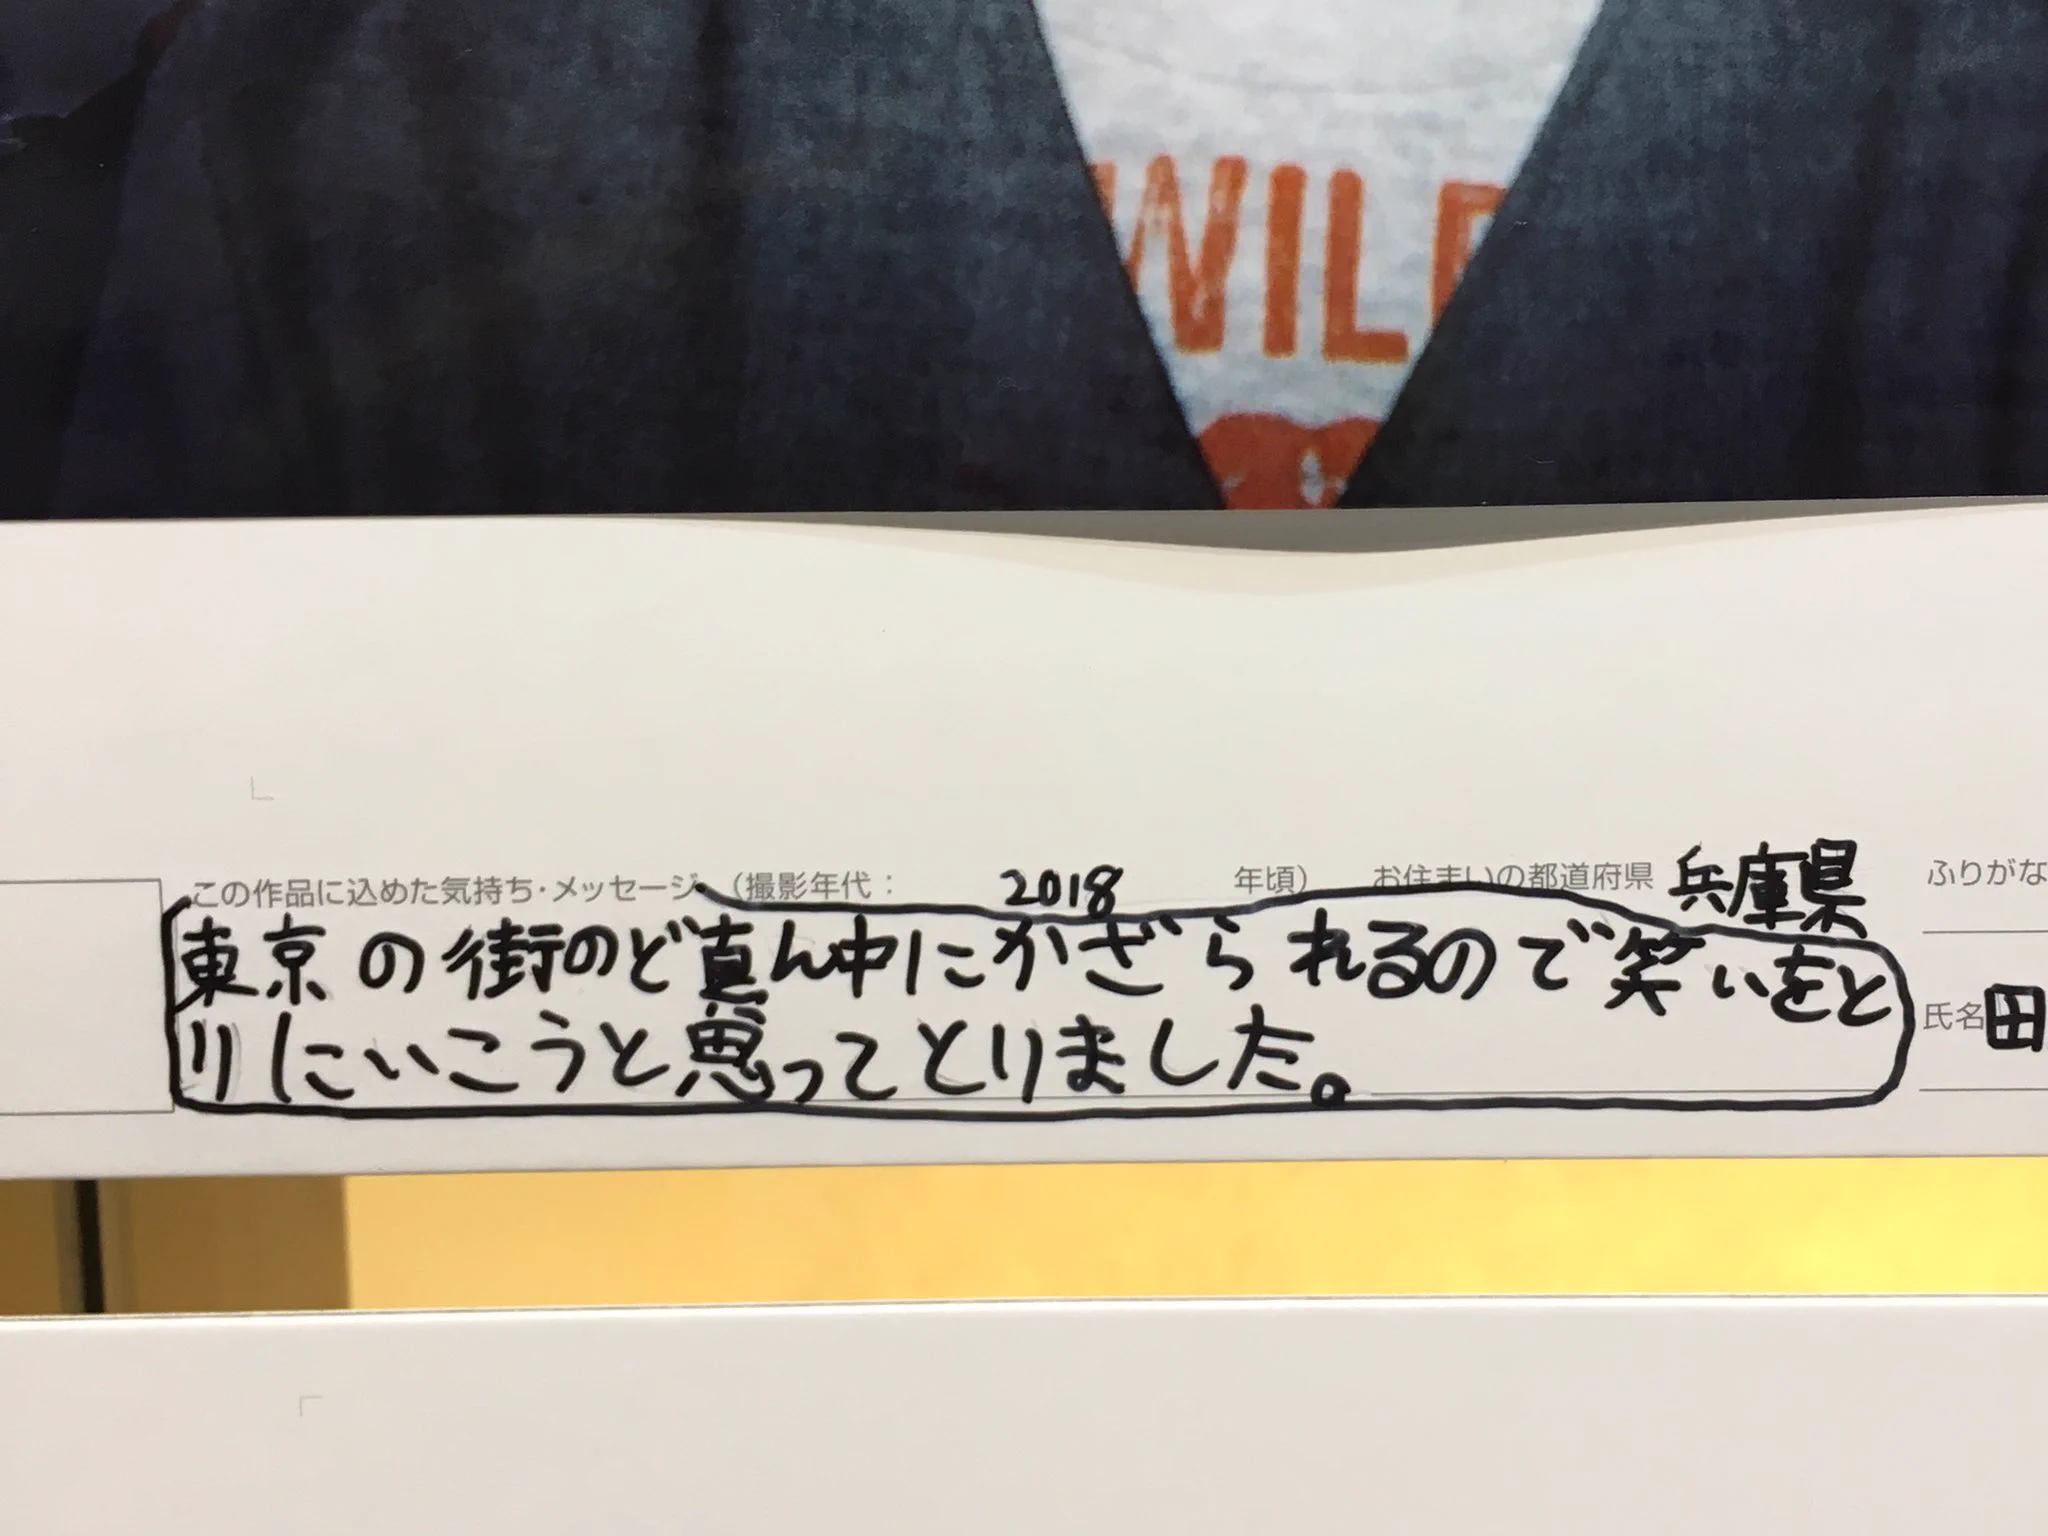 WIL
この作品に込めた気持ち・メッセージ (撮影年代: 2018 年頃) お住まいの都道府県 兵庫県 ふりがな
東京の街のど真ん中にかざられるので笑いをと
りにいこうと思ってとりました。
氏名 田